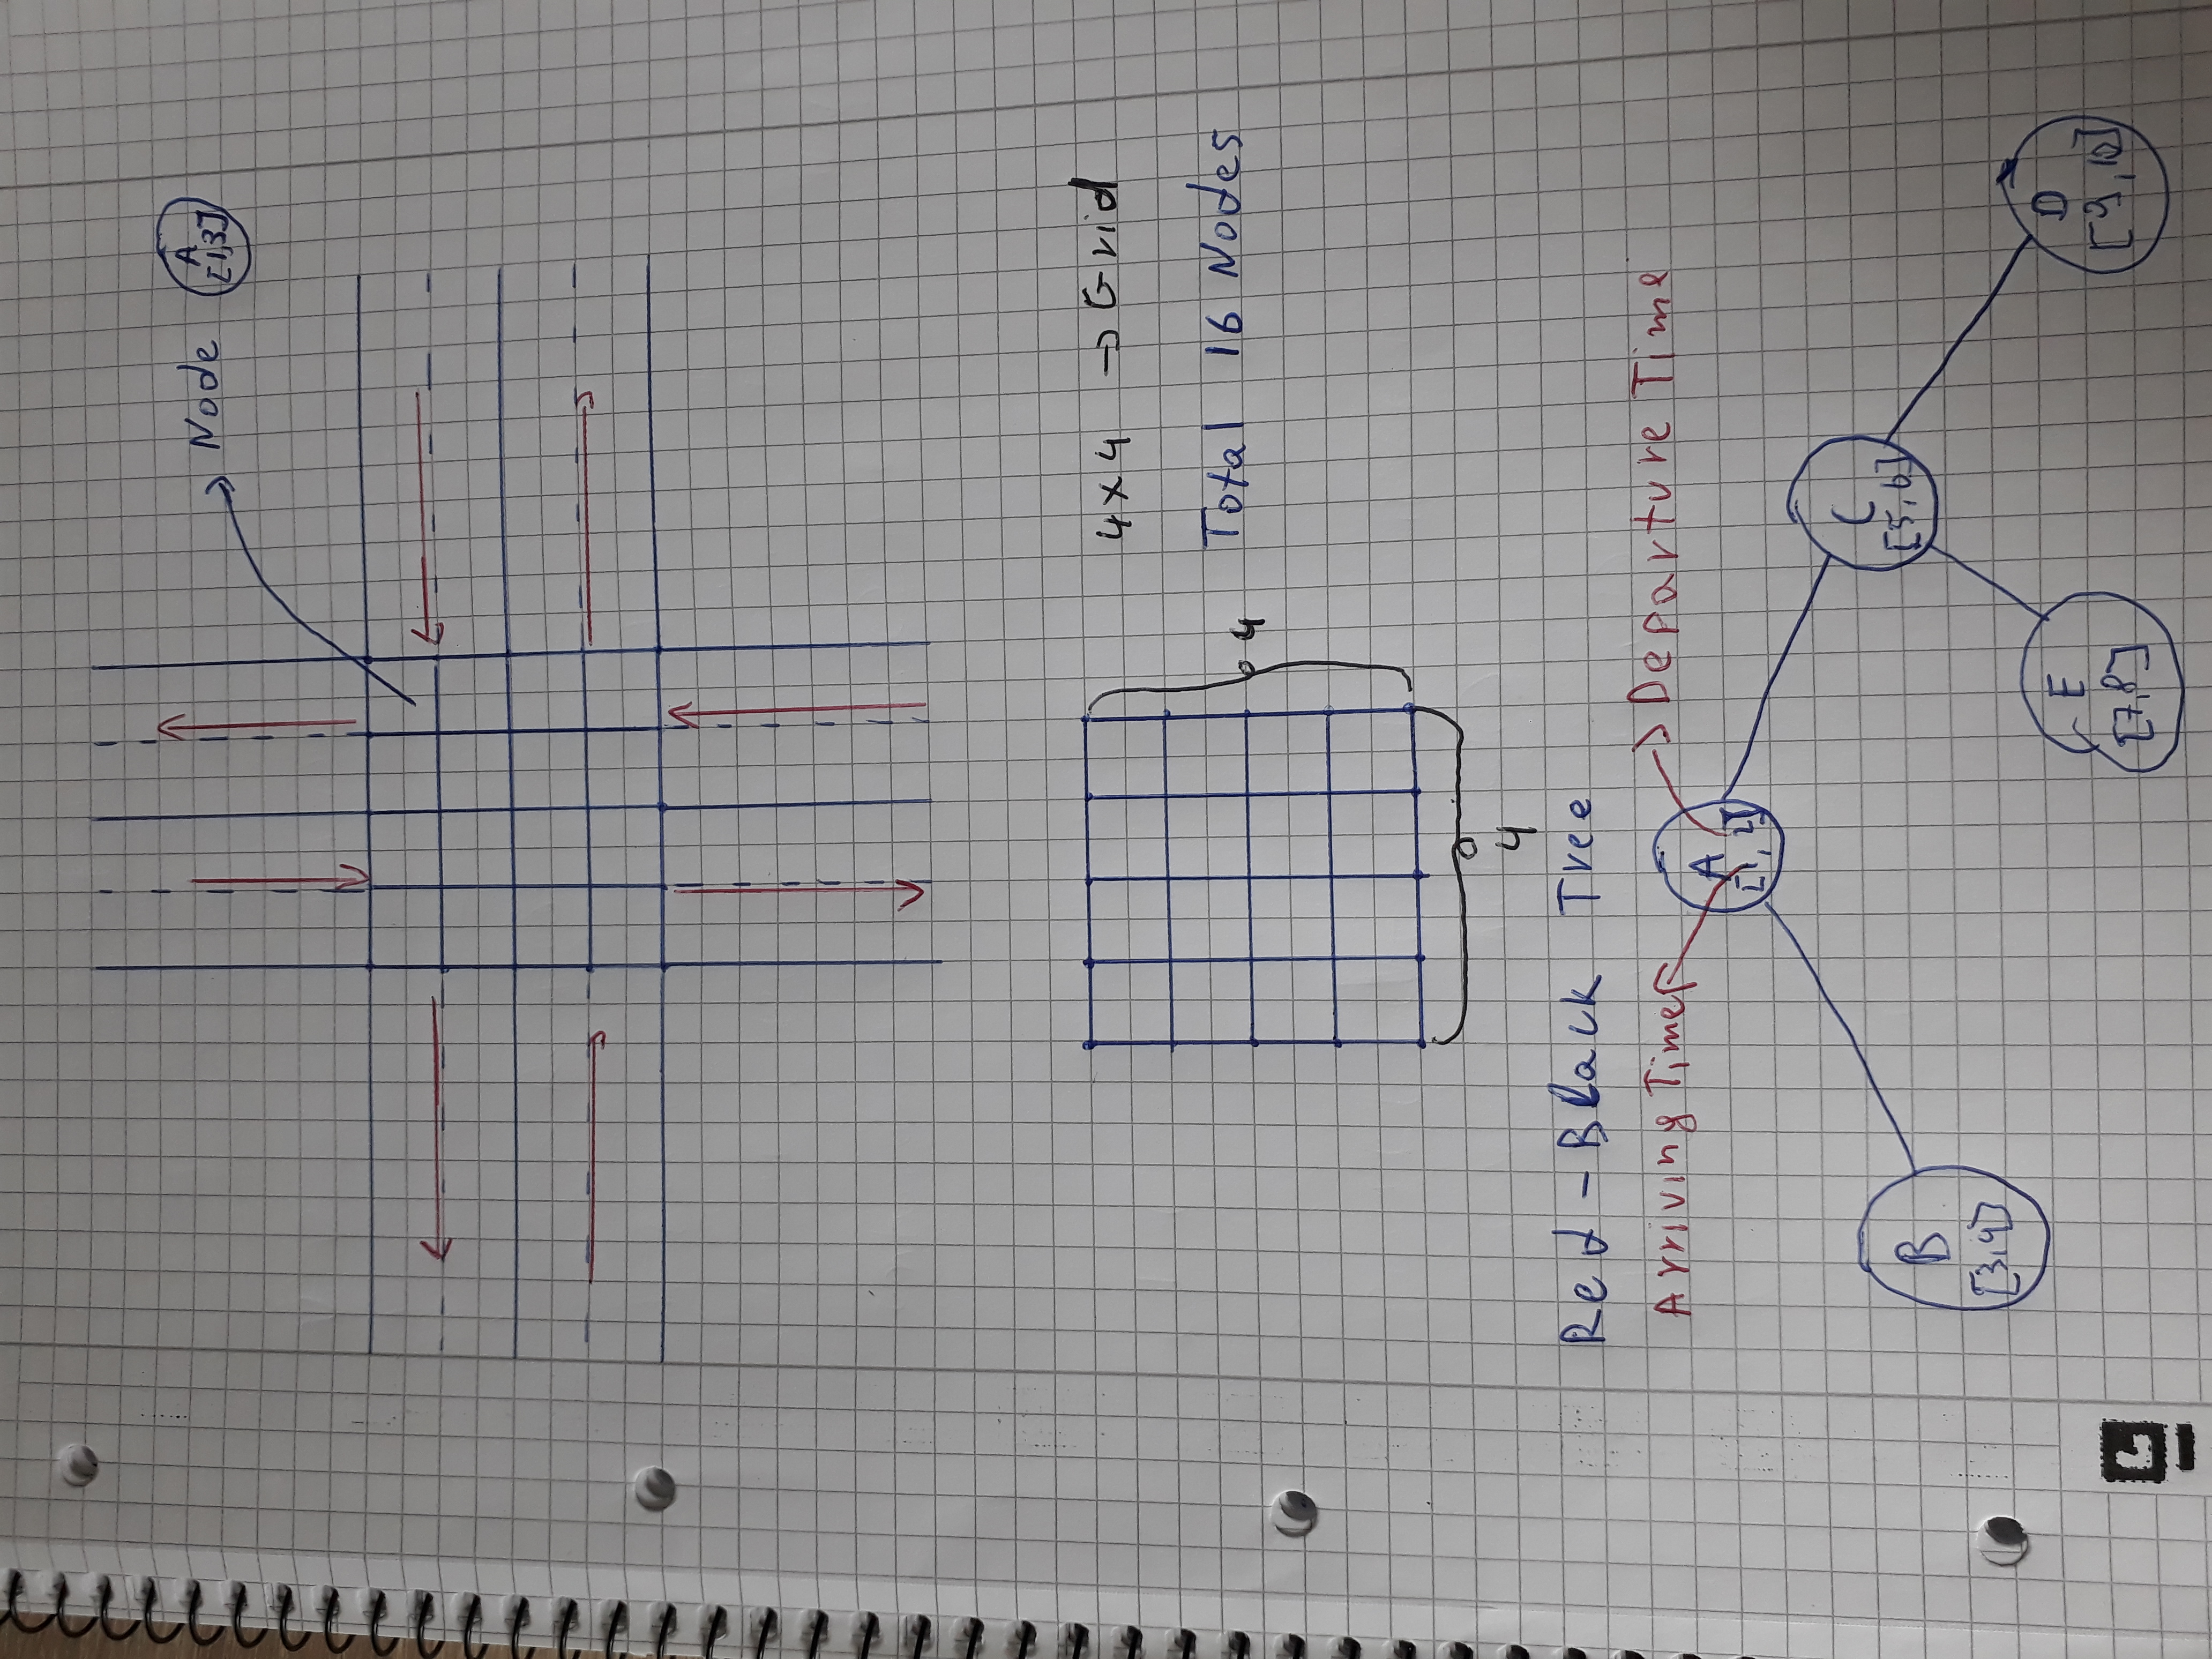 Node A
[1,3]
4 x 4 → Grid
Total 16 Nodes
4
4
Red - Black Tree
Arriving Time
Departure Time
A
[1, 2]
C
[5,6]
B
[3,4]
E
[7,8]
D